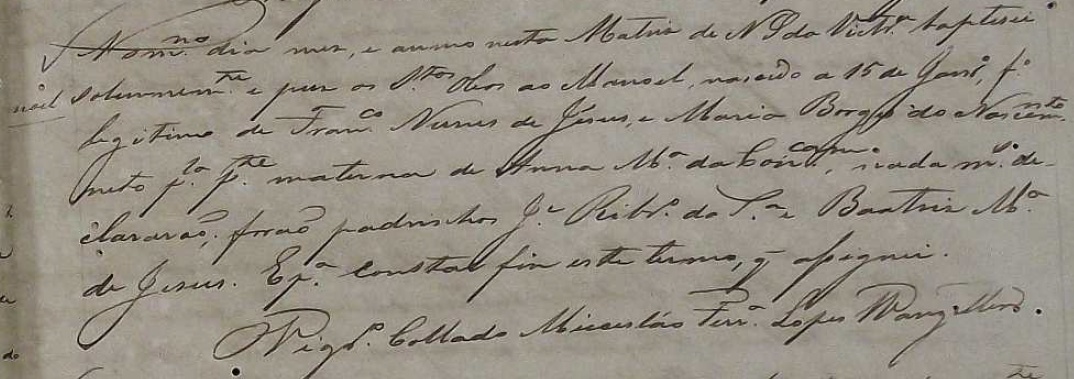 No m.no dia mes, e anno nesta Matriz de N S da Vict.ª baptisei
noel solemnem.te e puz os S.tos oleos ao Manoel, nascido a 15 de Janr.º, f.º
legitimo de Fran.co Nunes de Jesus, e Maria Borges do Nascim.nto
neto p.la p.te materna de Anna M.ª da Conc.am, nada m.s de-
clararaõ, foraõ padrinhos J.e Ribr.º da S.ª e Beatris M.ª
de Jesus. E p.ª constar fiz este termo, q assignei.
Vigr.º Collado Ferr.ª Lopes